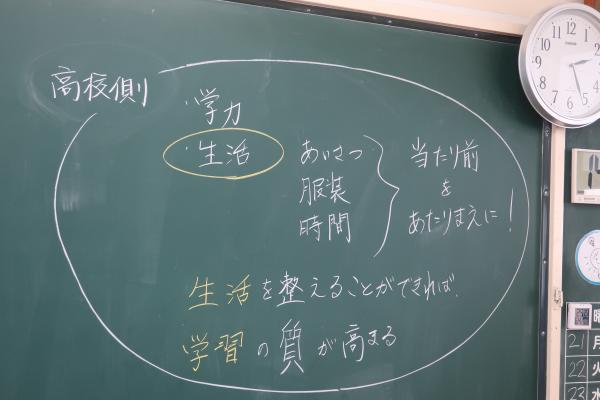 高校側
・学力
・生活
あいさつ
服装
時間
当たり前
を
あたりまえに！
生活を整えることができれば、
学習の質が高まる
12
1
2
3
4
5
6
7
8
9
10
11
曜
21 月
22 火
23 水